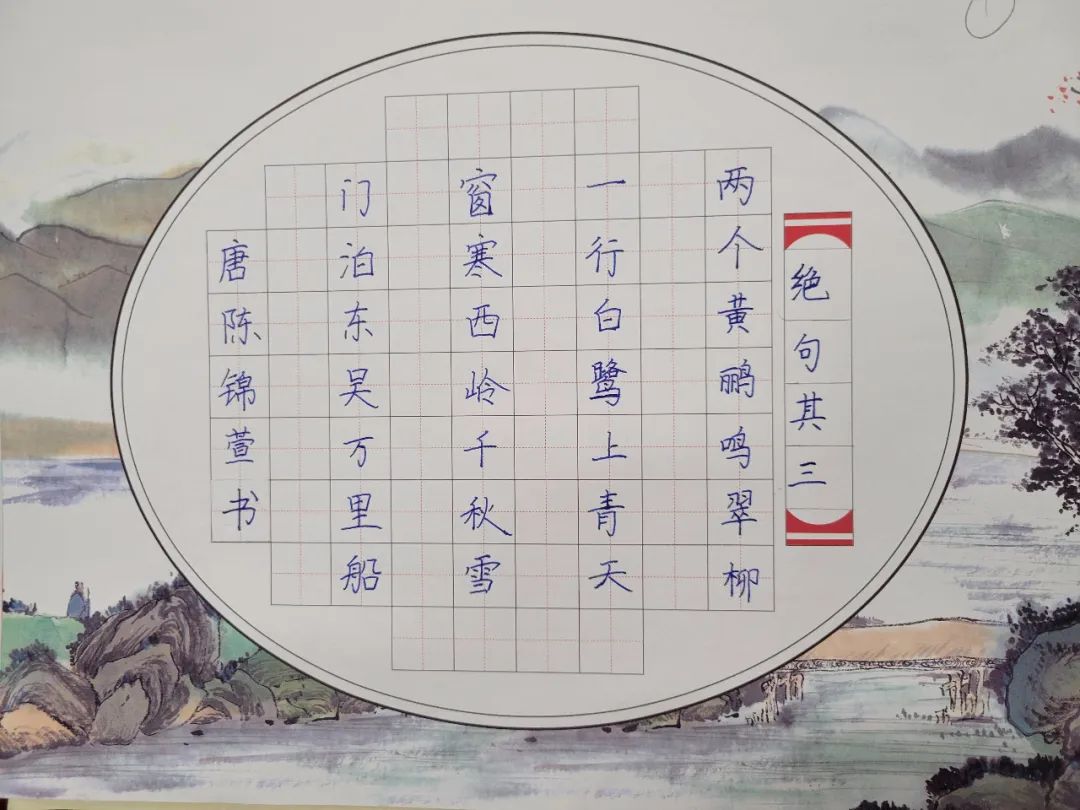 绝句其三
两个黄鹂鸣翠柳
一行白鹭上青天
窗寒西岭千秋雪
门泊东吴万里船
唐陈锦萱书